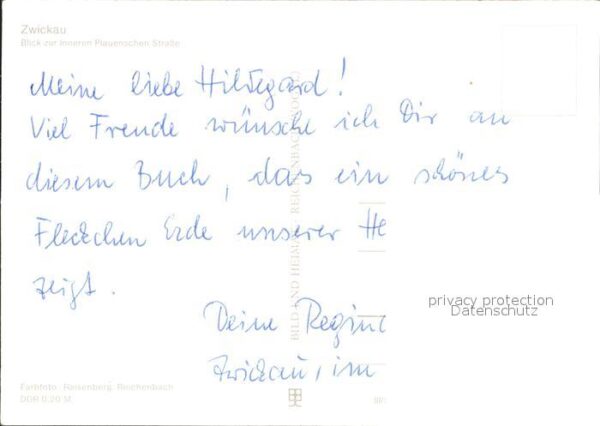 Zwickau
Blick zur Inneren Plauenschen Straße
Meine liebe Hildegard!
Viel Freude wünsche ich Dir an
diesem Buch, das ein schönes
Fleckchen Erde unserer He
zeigt.
Deine Regina
Zwickau, im
BILD UND HEIMAT REICHENBACH (VOGTL)
privacy protection
Datenschutz
Farbfoto: Raisenberg, Reichenbach
DDR 0,20 M